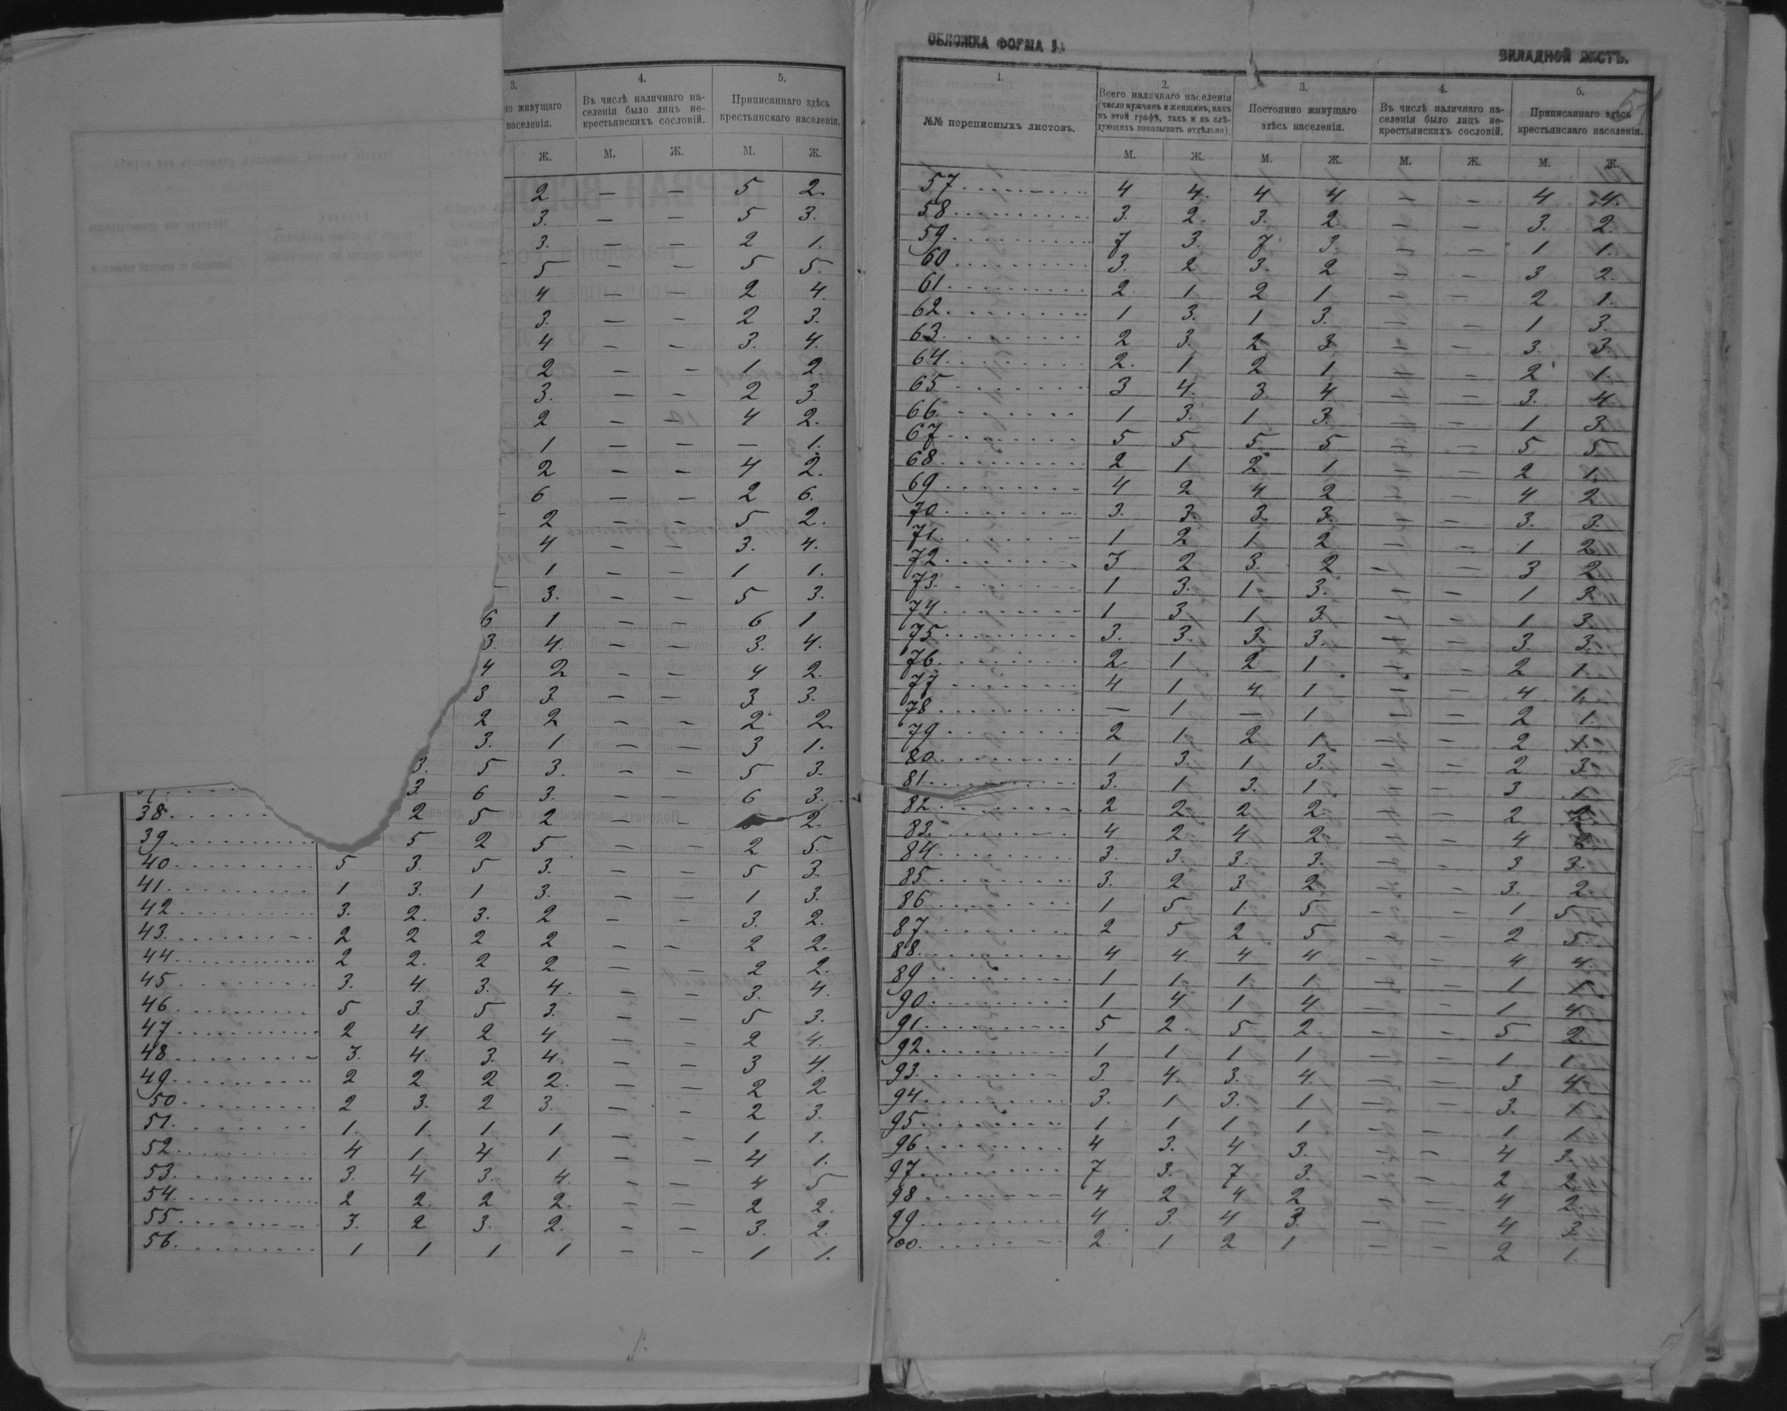 3. 4. 5.
но живущаго населенія. Въ числѣ наличнаго населенія было лицъ некрестьянскихъ сословій. Приписаннаго здѣсь крестьянскаго населенія.
Ж. М. Ж. М. Ж.
2 — — 5 2.
3. — — 5 3.
3. — — 2 1.
5 — — 5 5.
4 — — 2 4.
3. — — 2 3.
4 — — 3. 4.
2 — — 1 2
3. — — 2 3
2 — — 4 2.
1 — — — 1.
2 — — 4 2.
6 — — 2 6.
2 — — 5 2.
4 — — 3. 4.
1 — — 1 1.
3. — — 5 3.
6 1 — — 6 1
3. 4. — — 3. 4.
4 2 — — 4 2.
3 3. — — 3 3.
2 2 — — 2 2
3. 1 — — 3 1.
3. 5 3. — — 5 3.
3 6 3. — — 6 3.
38. 2 5 2 — — 2.
39. 5 2 5 — — 2 5.
40 5 3 5 3. — — 5 3.
41. 1 3. 1 3. — — 1 3.
42 3. 2. 3. 2 — — 3. 2.
43. 2 2 2 2 — — 2 2.
44 2 2. 2 2 — — 2 2.
45 3. 4 3. 4. — — 3. 4.
46 5 3. 5 3. — — 5 3.
47 2 4 2 4 — — 2 4.
48 3. 4. 3. 4. — — 3 4.
49 2 2 2 2. — — 2 2
50 2 3. 2 3. — — 2 3.
51. 1. 1. 1 1 — — 1 1.
52 4 1 4 1 — — 4 1.
53. 3. 4. 3. 4. — — 4 5
54. 2 2. 2 2. — — 2 2.
55 3. 2 3. 2. — — 3. 2.
56. 1 1 1 1 — — 1 1.
ОБЛОЖКА ФОРМА
ВКЛАДНОЙ ЛИСТЪ.
1. 2. 3. 4. 5.
№№ переписныхъ листовъ. Всего наличнаго населенія (число мужчинъ и женщинъ, какъ въ этой графѣ, такъ и въ слѣдующихъ показывать отдѣльно). Постоянно живущаго здѣсь населенія. Въ числѣ наличнаго населенія было лицъ некрестьянскихъ сословій. Приписаннаго здѣсь крестьянскаго населенія.
М. Ж. М. Ж. М. Ж. М. Ж.
57 4 4. 4 4 — — 4 4.
58 3. 2. 3. 2 — — 3. 2.
59 7 3. 7 3. — — 1 1.
60 3. 2 3. 2 — — 3 2.
61 2 1 2 1 — — 2 1.
62 1 3. 1 3. — — 1 3.
63 2 3. 2 3 — — 3. 3.
64 2. 1 2 1 — — 2 1.
65 3 4. 3 4 — — 3. 4.
66 1 3. 1 3. — — 1 3
67 5 5 5 5 — — 5 5
68 2 1 2 1 — — 2 1.
69 4 2 4 2 — — 4 2
70 3. 3. 3. 3. — — 3. 3.
71. 1 2 1 2 — — 1 2
72 3 2 3. 2 — — 3 2
73 1 3. 1 3. — — 1 3
74 1 3. 1 3. — — 1 3.
75 3. 3. 3. 3. — — 3 3.
76 2 1 2 1 — — 2 1.
77 4 1 4 1 — — 4 1.
78 — 1 — 1 — — 2 1.
79 2 1 2 1 — — 2 1.
80 1 3. 1 3. — — 2 3
81 3. 1 3. 1 — — 3 1
82 2 2 2 2 — — 2
83. 4 2 4 2 — — 4 2
84 3. 3. 3. 3. — — 3 3.
85 3. 2 3 2 — — 3. 2.
86 1 5 1 5 — — 1 5
87 2 5 2 5 — — 2 5.
88 4 4 4 4 — — 4 4.
89 1 1 1 1 — — 1 1
90 1 4 1 4 — — 1 4.
91 5 2 5 2 — — 5 2
92 1 1 1 1 — — 1 1
93 3. 4. 3. 4. — — 3 4
94 3. 1 3. 1 — — 3. 1
95 1 1 1 1 — — 1 1
96 4 3. 4 3. — — 4 3.
97 7 3. 7 3. — — 2 2.
98 4 2 4 2 — — 4 2.
99 4 3. 4 3. — — 4 3.
00. 2 1 2 1 — — 2 1.